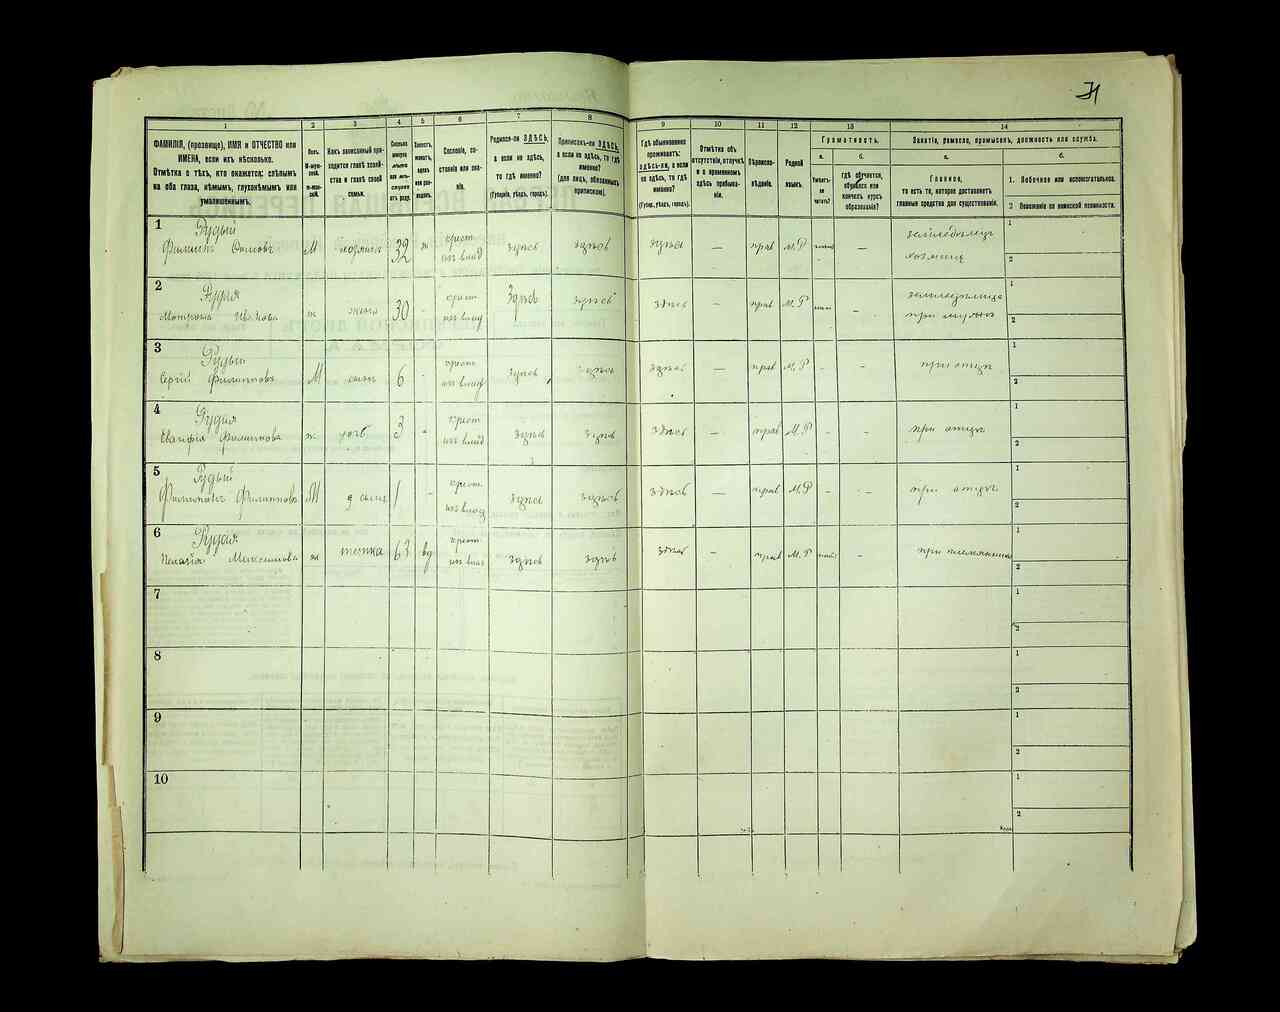 71
1
2
3
4
5
6
7
8
9
10
11
12
13
14
ФАМИЛІЯ, (прозвище), ИМЯ и ОТЧЕСТВО или
ИМЕНА, если ихъ нѣсколько.
Отмѣтка о тѣхъ, кто окажется: слѣпымъ
на оба глаза, нѣмымъ, глухонѣмымъ или
умалишеннымъ.
Полъ.
Какъ записанный при-
ходится главѣ хозяй-
ства и главѣ своей
семьи.
Сословіе, со-
стояніе или зва-
ніе.
Родился-ли ЗДѢСЬ,
а если не здѣсь,
то гдѣ именно?
(Губернія, уѣздъ, городъ).
Приписанъ-ли ЗДѢСЬ,
а если не здѣсь, то гдѣ
именно?
(для лицъ, обязанныхъ
припискою).
Гдѣ обыкновенно
проживаетъ:
здѣсь-ли, а если
не здѣсь, то гдѣ
именно?
(Губер., уѣздъ, городъ).
Отмѣтка объ
отсутствіи, отлучкѣ
и о временномъ
здѣсь пребыва-
ніи.
Вѣроиспо-
вѣданіе.
Родной
языкъ.
Грамотность.
а.
Умѣетъ-
ли
читать?
б.
гдѣ обучается,
обучался или
кончилъ курсъ
образованія?
Занятіе, ремесло, промыселъ, должность или служба.
а.
Главное,
то есть то, которое доставляетъ
главныя средства для существованія.
б.
1. Побочное или вспомогательное.
2 Положеніе по воинской повинности.
1
Рудый
Филипъ
М
хозяинъ
32
32
крест
изъ влад
здѣсь
здѣсь
здѣсь
—
прав
М.Р
—
земледѣлецъ
хозяинъ
1
2
2
Рудая
ж
жена
30
-
крест
изъ влад
Здѣсь
здѣсь
здѣсь
—
прав
М.Р
-
1
2
3
Рудый
Сергій Филиповъ
М
сынъ
6
-
крест
изъ влад
здѣсь
здѣсь
здѣсь
—
прав
М.Р
-
-
при отцѣ
1
2
4
Рудая
Филипова
ж
дочь
3
-
крест
изъ влад
здѣсь
здѣсь
здѣсь
—
прав
М.Р
-
-
при отцѣ
1
2
5
Рудый
Филиповъ
М
сынъ
1
-
крест
изъ влад
здѣсь
здѣсь
здѣсь
—
прав
М.Р
-
-
при отцѣ
1
2
6
Рудая
Пелагія Максимова
ж
тетка
63
вд
крест
изъ влад
здѣсь
здѣсь
здѣсь
—
прав
М.Р
-
при племянникѣ
1
2
7
1
2
8
1
2
9
1
2
10
1
2